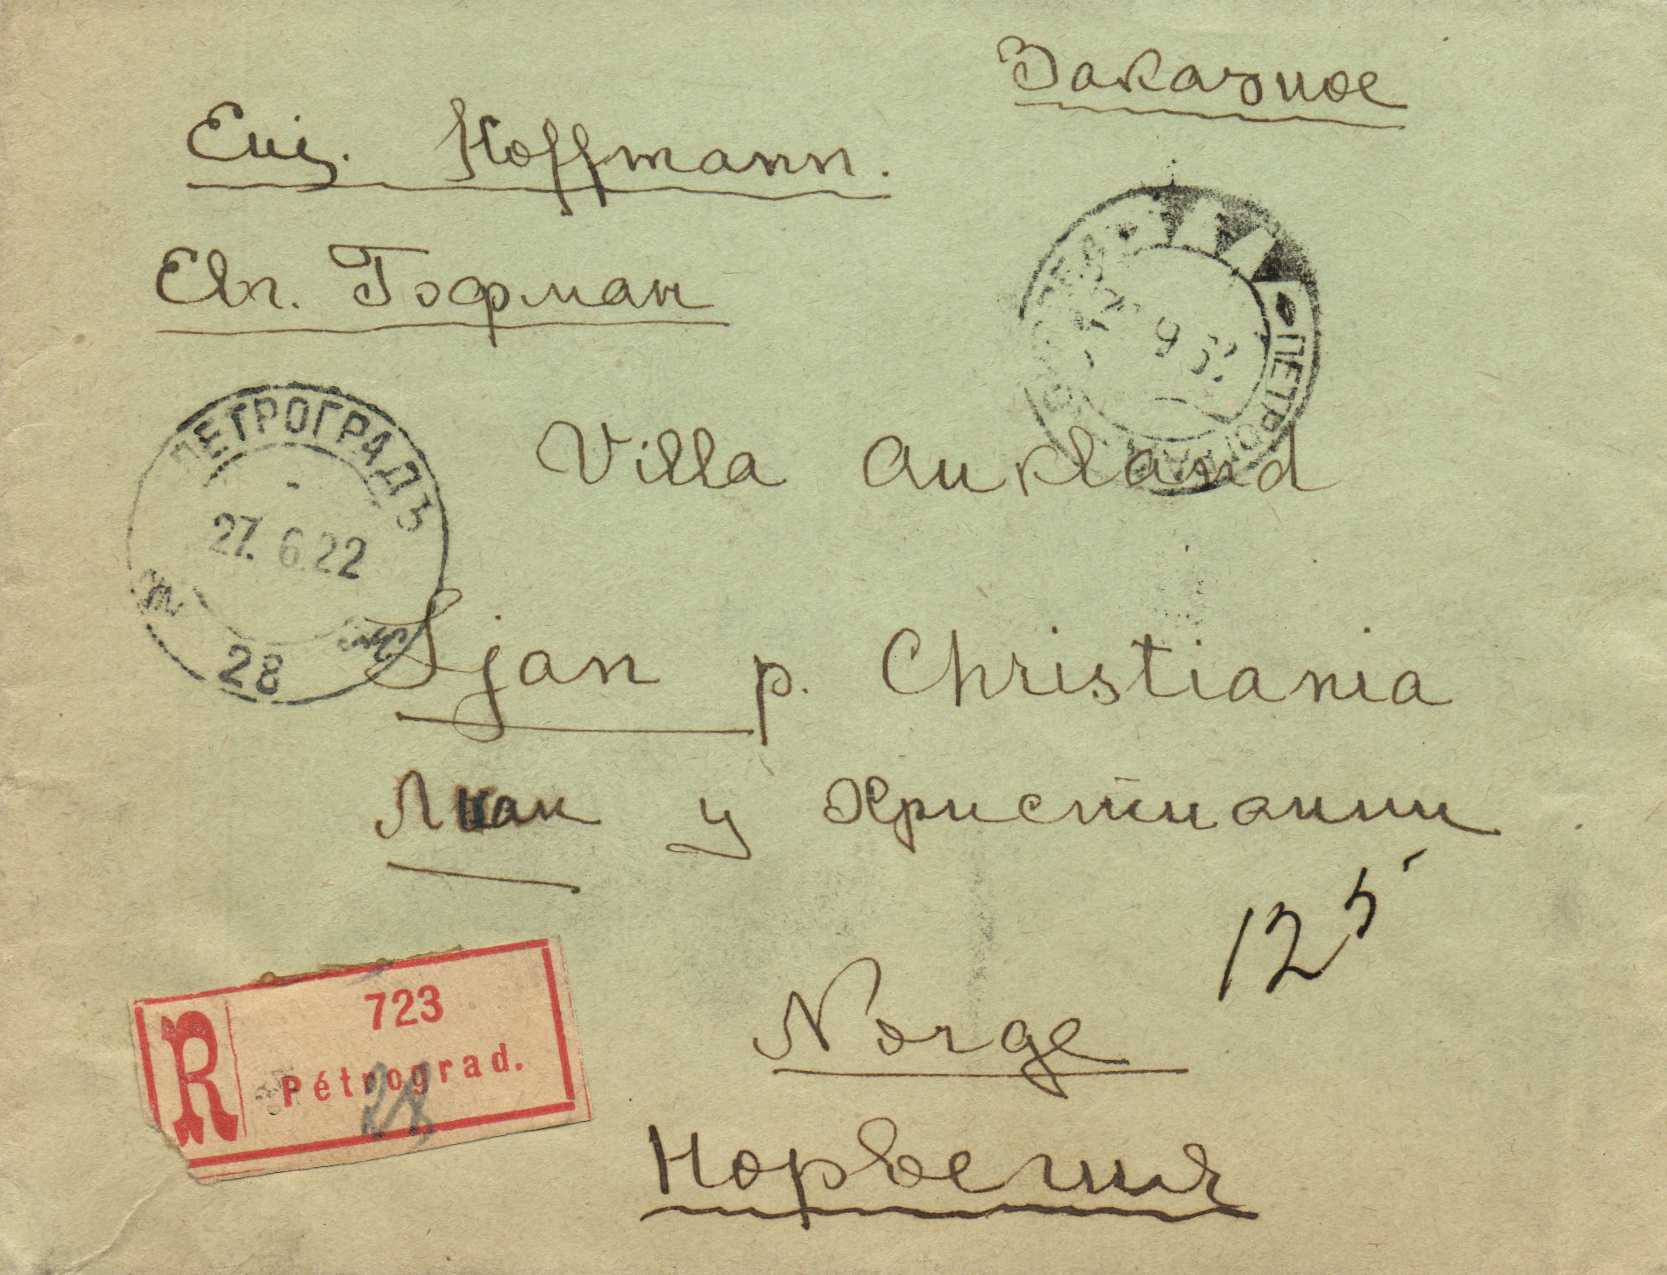 Заказное
Eug. Hoffmann.
Евг. Гофман
ПЕТРОГРАДЪ
27.6.22
28
ПЕТРОГРАД
Villa Aukland
Ljan p. Christiania
Лиан у Христиании
125
Norge
Норвегия
R
723
Pétrograd.
28